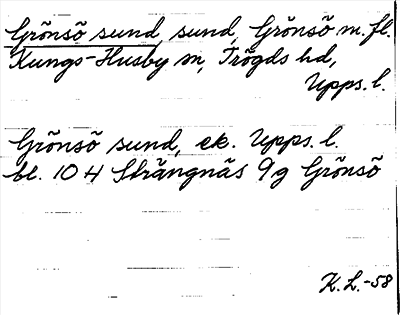 Grönsö sund, sund, Grönsö m. fl.
Kungs-Husby sn, Trögds hd,
Upps. l.
Grönsö sund, ek. Upps. l.
bl. 104 Strängnäs 9g Grönsö
K.L.-58